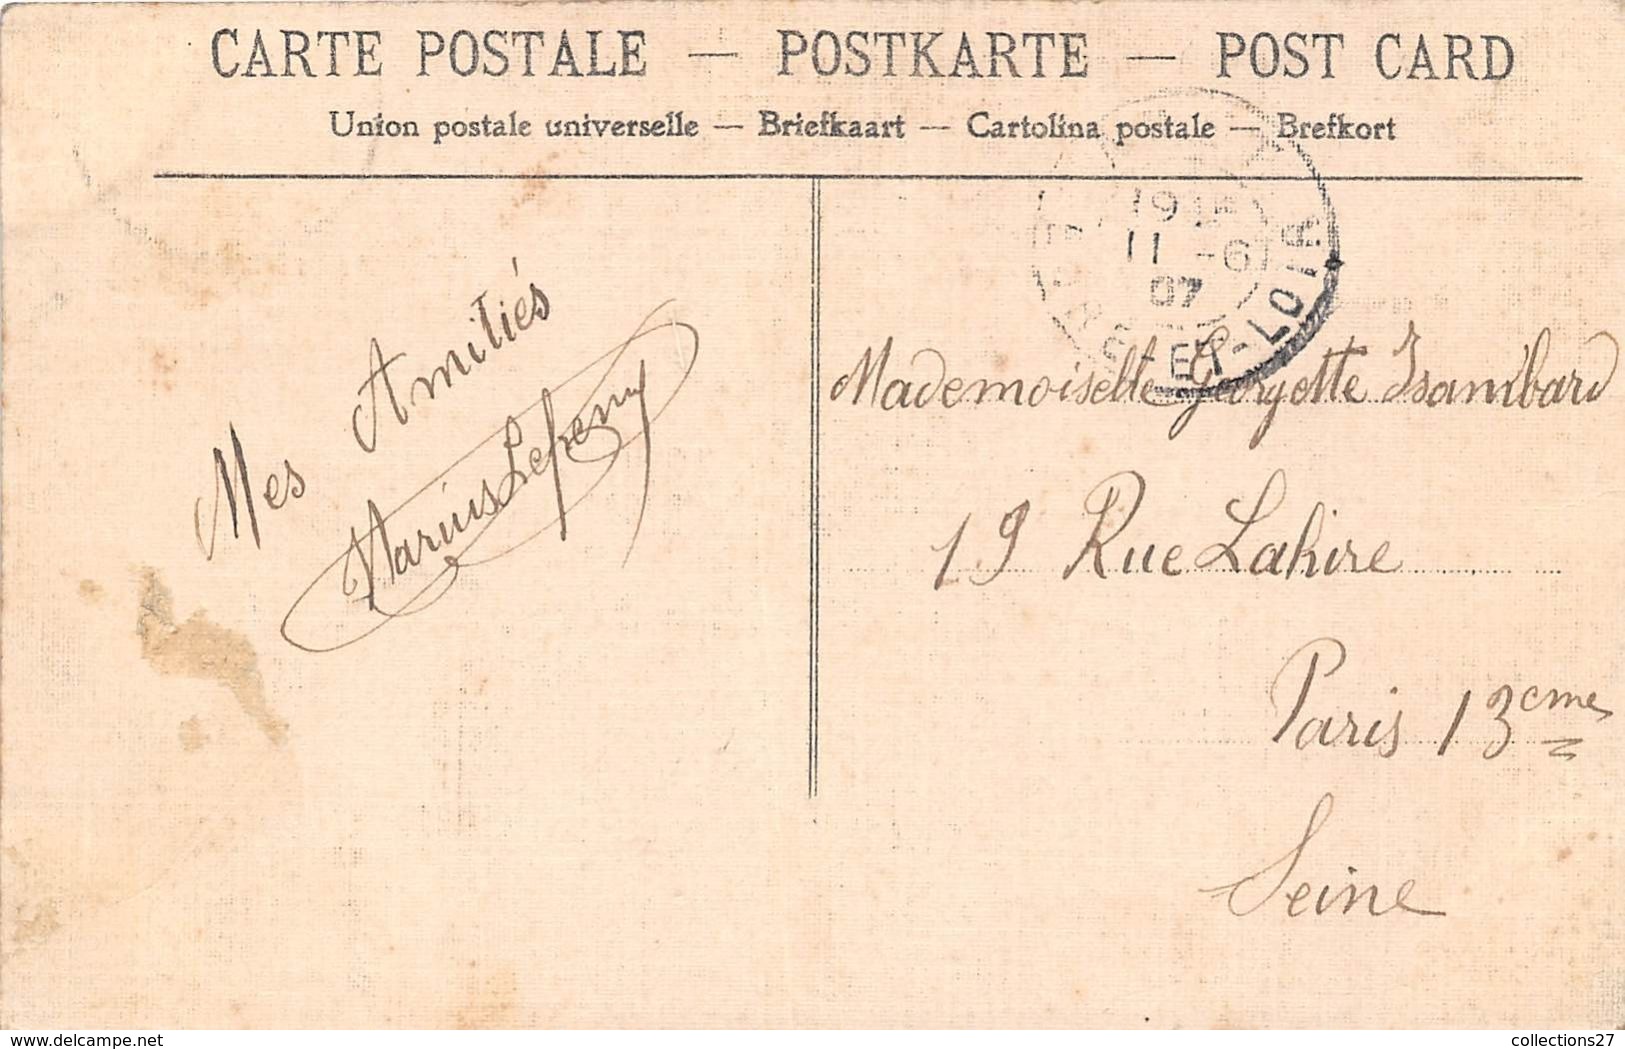 CARTE POSTALE — POSTKARTE — POST CARD
Union postale universelle — Briefkaart — Cartolina postale — Brefkort
11 -6
07
EURE-ET-LOIR
Mes Amitiés
Marius
Mademoiselle Georgette Isambard
19 Rue Lahire
Paris 13eme
Seine
www.delcampe.net
collections27